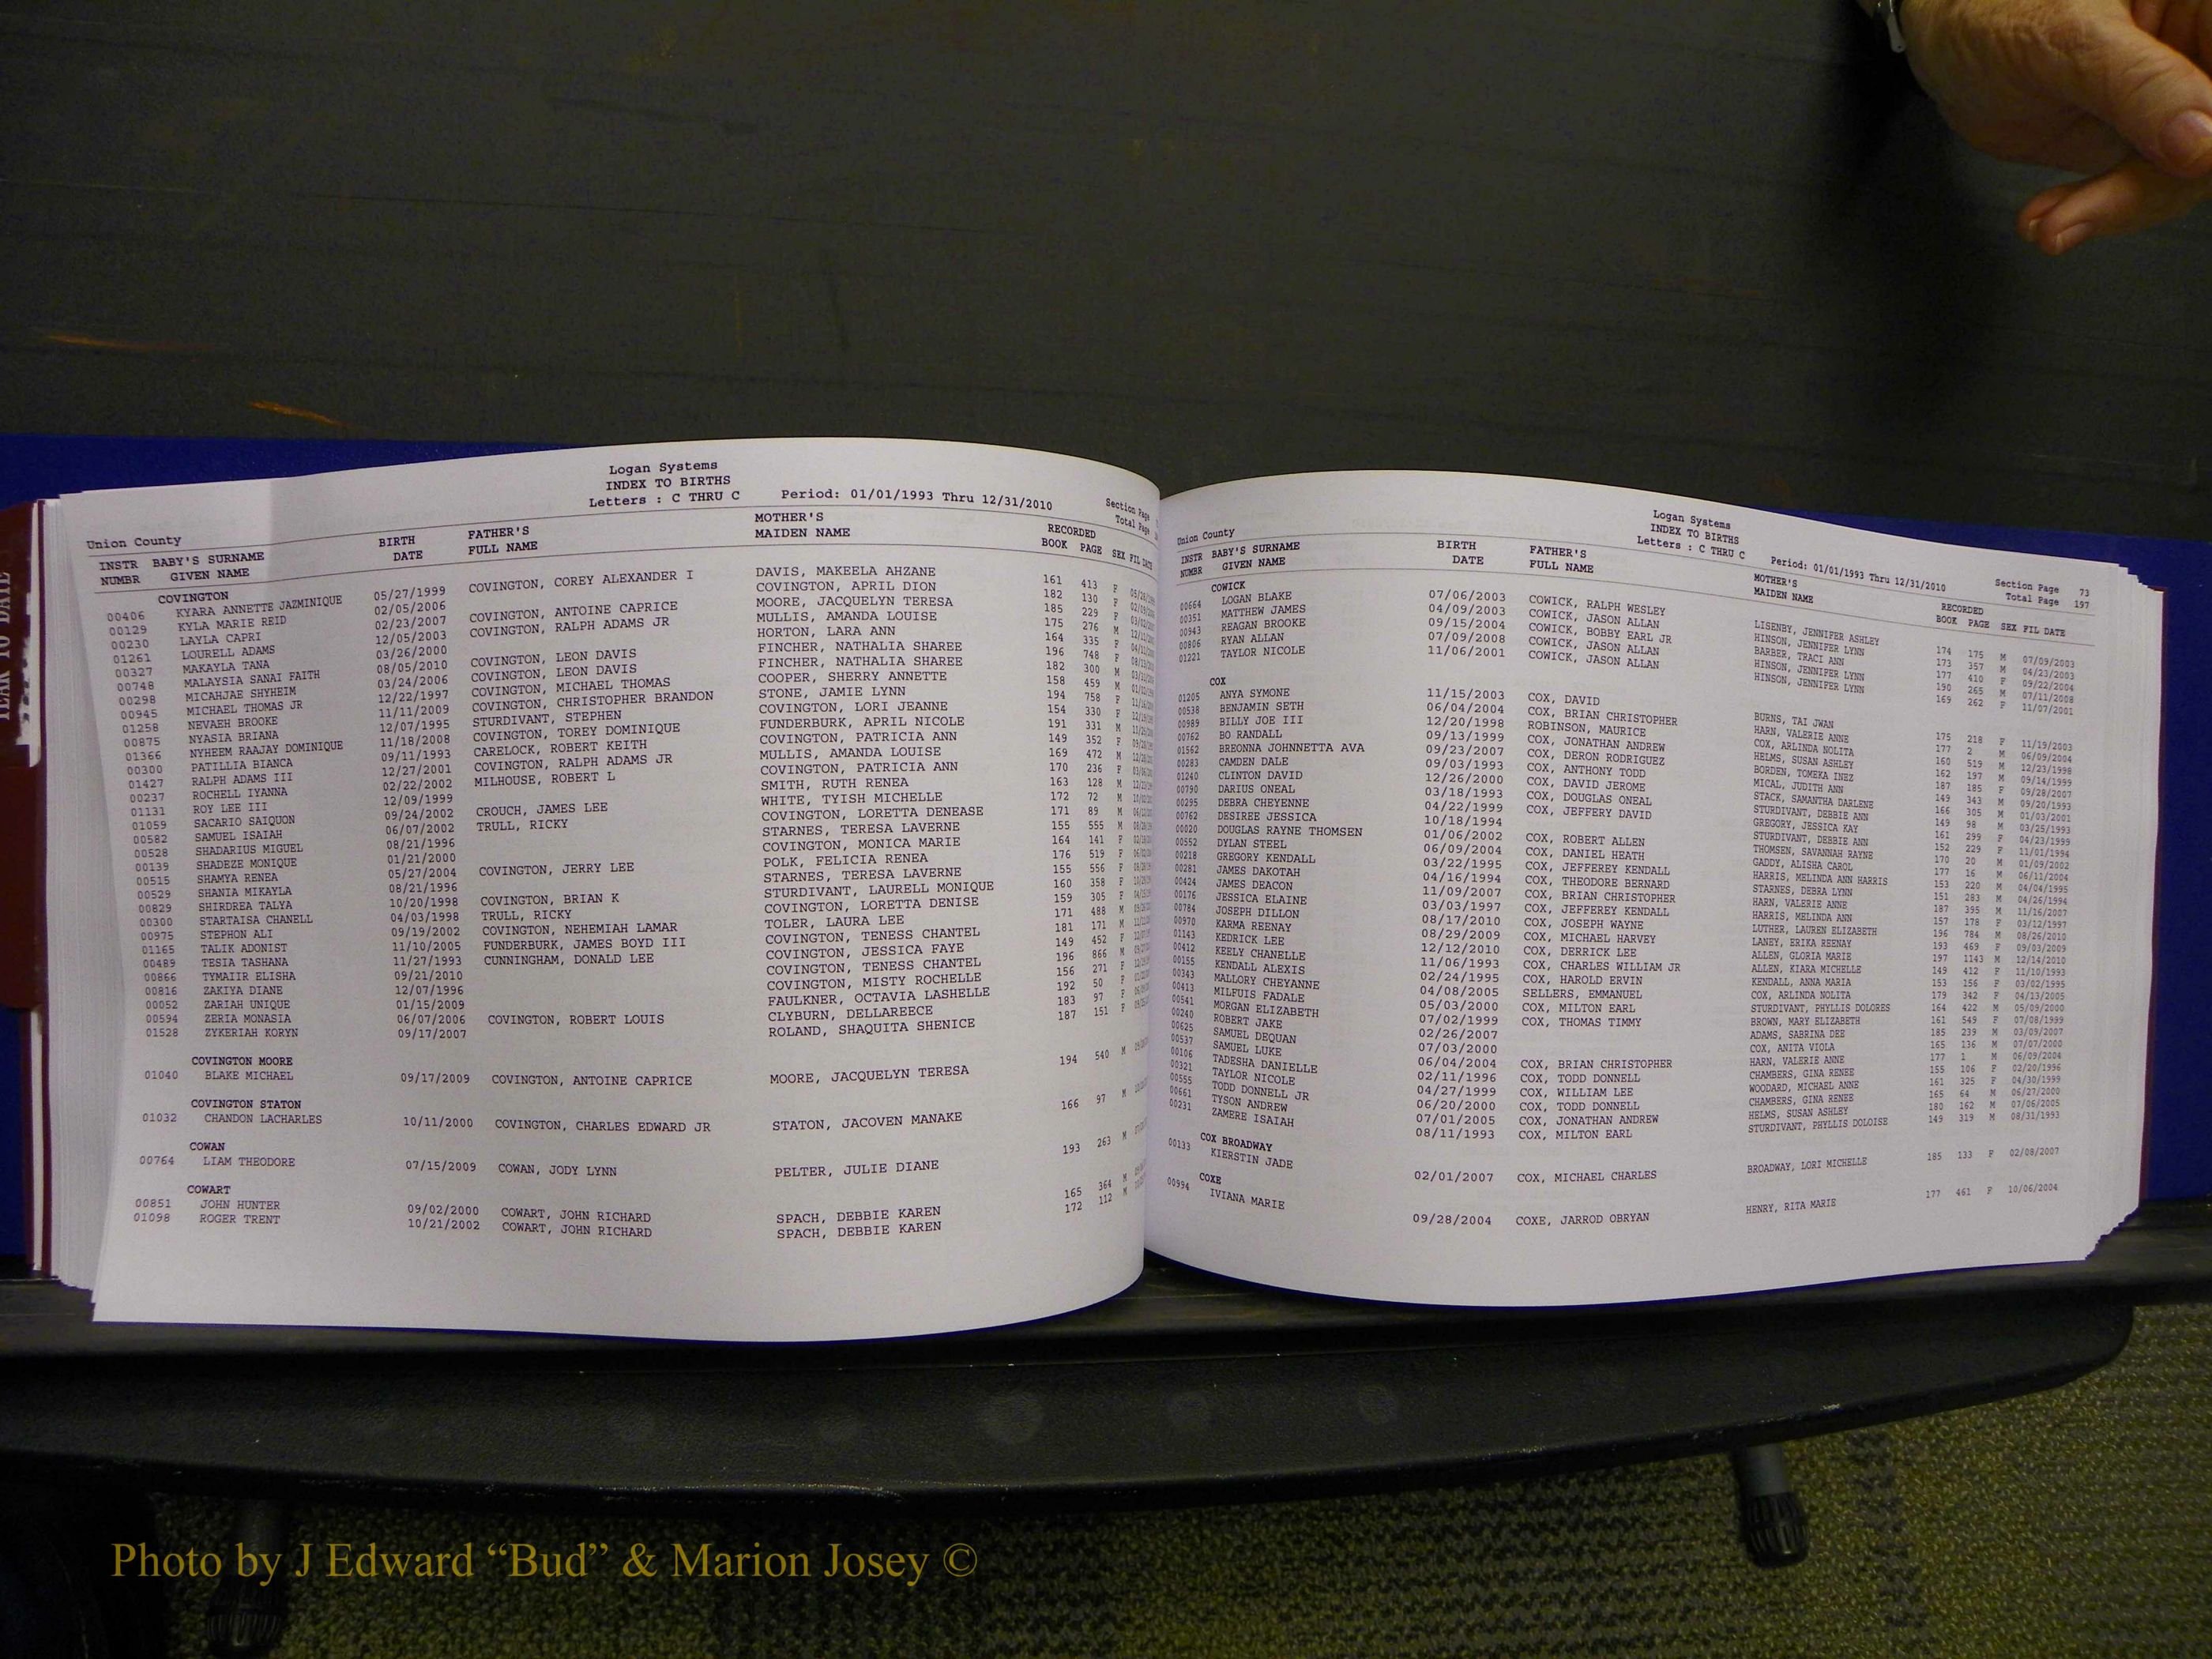 Logan Systems
INDEX TO BIRTHS
Letters : C THRU C Period: 01/01/1993 Thru 12/31/2010
Section Page
Total Page
Union County
INSTR BABY'S SURNAME BIRTH FATHER'S MOTHER'S RECORDED
NUMBR GIVEN NAME DATE FULL NAME MAIDEN NAME BOOK PAGE SEX FIL DATE
COVINGTON
00406 KYARA ANNETTE JAZMINIQUE 05/27/1999 COVINGTON, COREY ALEXANDER I DAVIS, MAKEELA AHZANE 161 413 F
00129 KYLA MARIE REID 02/05/2006 COVINGTON, APRIL DION 182 130 F
00230 LAYLA CAPRI 02/23/2007 COVINGTON, ANTOINE CAPRICE MOORE, JACQUELYN TERESA 185 229 F
01261 LOURELL ADAMS 12/05/2003 COVINGTON, RALPH ADAMS JR MULLIS, AMANDA LOUISE 175 276 M
00327 MAKAYLA TANA 03/26/2000 HORTON, LARA ANN 164 335 F
00748 MALAYSIA SANAI FAITH 08/05/2010 COVINGTON, LEON DAVIS FINCHER, NATHALIA SHAREE 196 748 F
00298 MICAHJAE SHYHEIM 03/24/2006 COVINGTON, LEON DAVIS FINCHER, NATHALIA SHAREE 182 300 M
00945 MICHAEL THOMAS JR 12/22/1997 COVINGTON, MICHAEL THOMAS COOPER, SHERRY ANNETTE 158 459 M
01258 NEVAEH BROOKE 11/11/2009 COVINGTON, CHRISTOPHER BRANDON STONE, JAMIE LYNN 194 758 F
00875 NYASIA BRIANA 12/07/1995 STURDIVANT, STEPHEN COVINGTON, LORI JEANNE 154 330 F
01366 NYHEEM RAAJAY DOMINIQUE 11/18/2008 COVINGTON, TOREY DOMINIQUE FUNDERBURK, APRIL NICOLE 191 331 M
00300 PATILLIA BIANCA 09/11/1993 CARELOCK, ROBERT KEITH COVINGTON, PATRICIA ANN 149 352 F
01427 RALPH ADAMS III 12/27/2001 COVINGTON, RALPH ADAMS JR MULLIS, AMANDA LOUISE 169 472 M
00237 ROCHELL IYANNA 02/22/2002 MILHOUSE, ROBERT L COVINGTON, PATRICIA ANN 170 236 F
01131 ROY LEE III 12/09/1999 SMITH, RUTH RENEA 163 128 M
01059 SACARIO SAIQUON 09/24/2002 CROUCH, JAMES LEE WHITE, TYISH MICHELLE 172 72 M
00582 SAMUEL ISAIAH 06/07/2002 TRULL, RICKY COVINGTON, LORETTA DENEASE 171 89 M
00528 SHADARIUS MIGUEL 08/21/1996 STARNES, TERESA LAVERNE 155 555 M
00139 SHADEZE MONIQUE 01/21/2000 COVINGTON, MONICA MARIE 164 141 F
00515 SHAMYA RENEA 05/27/2004 COVINGTON, JERRY LEE POLK, FELICIA RENEA 176 519 F
00529 SHANIA MIKAYLA 08/21/1996 STARNES, TERESA LAVERNE 155 556 F
00829 SHIRDREA TALYA 10/20/1998 COVINGTON, BRIAN K STURDIVANT, LAURELL MONIQUE 160 358 F
00300 STARTAISA CHANELL 04/03/1998 TRULL, RICKY COVINGTON, LORETTA DENISE 159 305 F
00975 STEPHON ALI 09/19/2002 COVINGTON, NEHEMIAH LAMAR TOLER, LAURA LEE 171 488 M
01165 TALIK ADONIST 11/10/2005 FUNDERBURK, JAMES BOYD III COVINGTON, TENESS CHANTEL 181 171 M
00489 TESIA TASHANA 11/27/1993 CUNNINGHAM, DONALD LEE COVINGTON, JESSICA FAYE 149 452 F
00866 TYMAIIR ELISHA 09/21/2010 COVINGTON, TENESS CHANTEL 196 866 M
00816 ZAKIYA DIANE 12/07/1996 COVINGTON, MISTY ROCHELLE 156 271 F
00052 ZARIAH UNIQUE 01/15/2009 FAULKNER, OCTAVIA LASHELLE 192 50 F
00594 ZERIA MONASIA 06/07/2006 COVINGTON, ROBERT LOUIS CLYBURN, DELLAREECE 183 97 F
01528 ZYKERIAH KORYN 09/17/2007 ROLAND, SHAQUITA SHENICE 187 151 F
COVINGTON MOORE
01040 BLAKE MICHAEL 09/17/2009 COVINGTON, ANTOINE CAPRICE MOORE, JACQUELYN TERESA 194 540 M
COVINGTON STATON
01032 CHANDON LACHARLES 10/11/2000 COVINGTON, CHARLES EDWARD JR STATON, JACOVEN MANAKE 166 97 M
COWAN
00764 LIAM THEODORE 07/15/2009 COWAN, JODY LYNN PELTER, JULIE DIANE 193 263 M
COWART
00851 JOHN HUNTER 09/02/2000 COWART, JOHN RICHARD SPACH, DEBBIE KAREN 165 364 M
01098 ROGER TRENT 10/21/2002 COWART, JOHN RICHARD SPACH, DEBBIE KAREN 172 112 M
Logan Systems
INDEX TO BIRTHS
Letters : C THRU C Period: 01/01/1993 Thru 12/31/2010
Section Page 73
Total Page 197
Union County
INSTR BABY'S SURNAME BIRTH FATHER'S MOTHER'S RECORDED
NUMBR GIVEN NAME DATE FULL NAME MAIDEN NAME BOOK PAGE SEX FIL DATE
COWICK
00664 LOGAN BLAKE 07/06/2003 COWICK, RALPH WESLEY LISENBY, JENNIFER ASHLEY 174 175 M 07/09/2003
00351 MATTHEW JAMES 04/09/2003 COWICK, JASON ALLAN HINSON, JENNIFER LYNN 173 357 M 04/23/2003
00943 REAGAN BROOKE 09/15/2004 COWICK, BOBBY EARL JR BARBER, TRACI ANN 177 410 F 09/22/2004
00806 RYAN ALLAN 07/09/2008 COWICK, JASON ALLAN HINSON, JENNIFER LYNN 190 265 M 07/11/2008
01221 TAYLOR NICOLE 11/06/2001 COWICK, JASON ALLAN HINSON, JENNIFER LYNN 169 262 F 11/07/2001
COX
01205 ANYA SYMONE 11/15/2003 COX, DAVID BURNS, TAI JWAN 175 218 F 11/19/2003
00538 BENJAMIN SETH 06/04/2004 COX, BRIAN CHRISTOPHER HARN, VALERIE ANNE 177 2 M 06/09/2004
00989 BILLY JOE III 12/20/1998 ROBINSON, MAURICE COX, ARLINDA NOLITA 160 519 M 12/23/1998
00762 BO RANDALL 09/13/1999 COX, JONATHAN ANDREW HELMS, SUSAN ASHLEY 162 197 M 09/14/1999
01562 BREONNA JOHNNETTA AVA 09/23/2007 COX, DERON RODRIGUEZ BORDEN, TOMEKA INEZ 187 185 F 09/28/2007
00283 CAMDEN DALE 09/03/1993 COX, ANTHONY TODD MICAL, JUDITH ANN 149 343 M 09/20/1993
01240 CLINTON DAVID 12/26/2000 COX, DAVID JEROME STACK, SAMANTHA DARLENE 166 305 M 01/03/2001
00790 DARIUS ONEAL 03/18/1993 COX, DOUGLAS ONEAL STURDIVANT, DEBBIE ANN 149 98 M 03/25/1993
00295 DEBRA CHEYENNE 04/22/1999 COX, JEFFERY DAVID GREGORY, JESSICA KAY 161 299 F 04/23/1999
00762 DESIREE JESSICA 10/18/1994 STURDIVANT, DEBBIE ANN 152 229 F 11/01/1994
00020 DOUGLAS RAYNE THOMSEN 01/06/2002 COX, ROBERT ALLEN THOMSEN, SAVANNAH RAYNE 170 20 M 01/09/2002
00552 DYLAN STEEL 06/09/2004 COX, DANIEL HEATH GADDY, ALISHA CAROL 177 16 M 06/11/2004
00218 GREGORY KENDALL 03/22/1995 COX, JEFFEREY KENDALL HARRIS, MELINDA ANN HARRIS 153 220 M 04/04/1995
00281 JAMES DAKOTAH 04/16/1994 COX, THEODORE BERNARD STARNES, DEBRA LYNN 151 283 M 04/26/1994
00424 JAMES DEACON 11/09/2007 COX, BRIAN CHRISTOPHER HARN, VALERIE ANNE 187 395 M 11/16/2007
00176 JESSICA ELAINE 03/03/1997 COX, JEFFEREY KENDALL HARRIS, MELINDA ANN 157 178 F 03/12/1997
00784 JOSEPH DILLON 08/17/2010 COX, JOSEPH WAYNE LUTHER, LAUREN ELIZABETH 196 784 M 08/26/2010
00970 KARMA REENAY 08/29/2009 COX, MICHAEL HARVEY LANEY, ERIKA REENAY 193 469 F 09/03/2009
01143 KEDRICK LEE 12/12/2010 COX, DERRICK LEE ALLEN, GLORIA MARIE 197 1143 M 12/14/2010
00412 KEELY CHANELLE 11/06/1993 COX, CHARLES WILLIAM JR ALLEN, KIARA MICHELLE 149 412 F 11/10/1993
00155 KENDALL ALEXIS 02/24/1995 COX, HAROLD ERVIN KENDALL, ANNA MARIA 153 156 F 03/02/1995
00343 MALLORY CHEYANNE 04/08/2005 SELLERS, EMMANUEL COX, ARLINDA NOLITA 179 342 F 04/13/2005
00413 MILFUIS FADALE 05/03/2000 COX, MILTON EARL STURDIVANT, PHYLLIS DOLORES 164 422 M 05/09/2000
00541 MORGAN ELIZABETH 07/02/1999 COX, THOMAS TIMMY BROWN, MARY ELIZABETH 161 549 F 07/08/1999
00240 ROBERT JAKE 02/26/2007 ADAMS, SABRINA DEE 185 239 M 03/09/2007
00625 SAMUEL DEQUAN 07/03/2000 COX, ANITA VIOLA 165 136 M 07/07/2000
00537 SAMUEL LUKE 06/04/2004 COX, BRIAN CHRISTOPHER HARN, VALERIE ANNE 177 1 M 06/09/2004
00106 TADESHA DANIELLE 02/11/1996 COX, TODD DONNELL CHAMBERS, GINA RENEE 155 106 F 02/20/1996
00321 TAYLOR NICOLE 04/27/1999 COX, WILLIAM LEE WOODARD, MICHAEL ANNE 161 325 F 04/30/1999
00555 TODD DONNELL JR 06/20/2000 COX, TODD DONNELL CHAMBERS, GINA RENEE 165 64 M 06/27/2000
00661 TYSON ANDREW 07/01/2005 COX, JONATHAN ANDREW HELMS, SUSAN ASHLEY 180 162 M 07/06/2005
00231 ZAMERE ISAIAH 08/11/1993 COX, MILTON EARL STURDIVANT, PHYLLIS DOLOISE 149 319 M 08/31/1993
COX BROADWAY
00133 KIERSTIN JADE 02/01/2007 COX, MICHAEL CHARLES BROADWAY, LORI MICHELLE 185 133 F 02/08/2007
COXE
00994 IVIANA MARIE 09/28/2004 COXE, JARROD OBRYAN HENRY, RITA MARIE 177 461 F 10/06/2004
Photo by J Edward “Bud” & Marion Josey ©